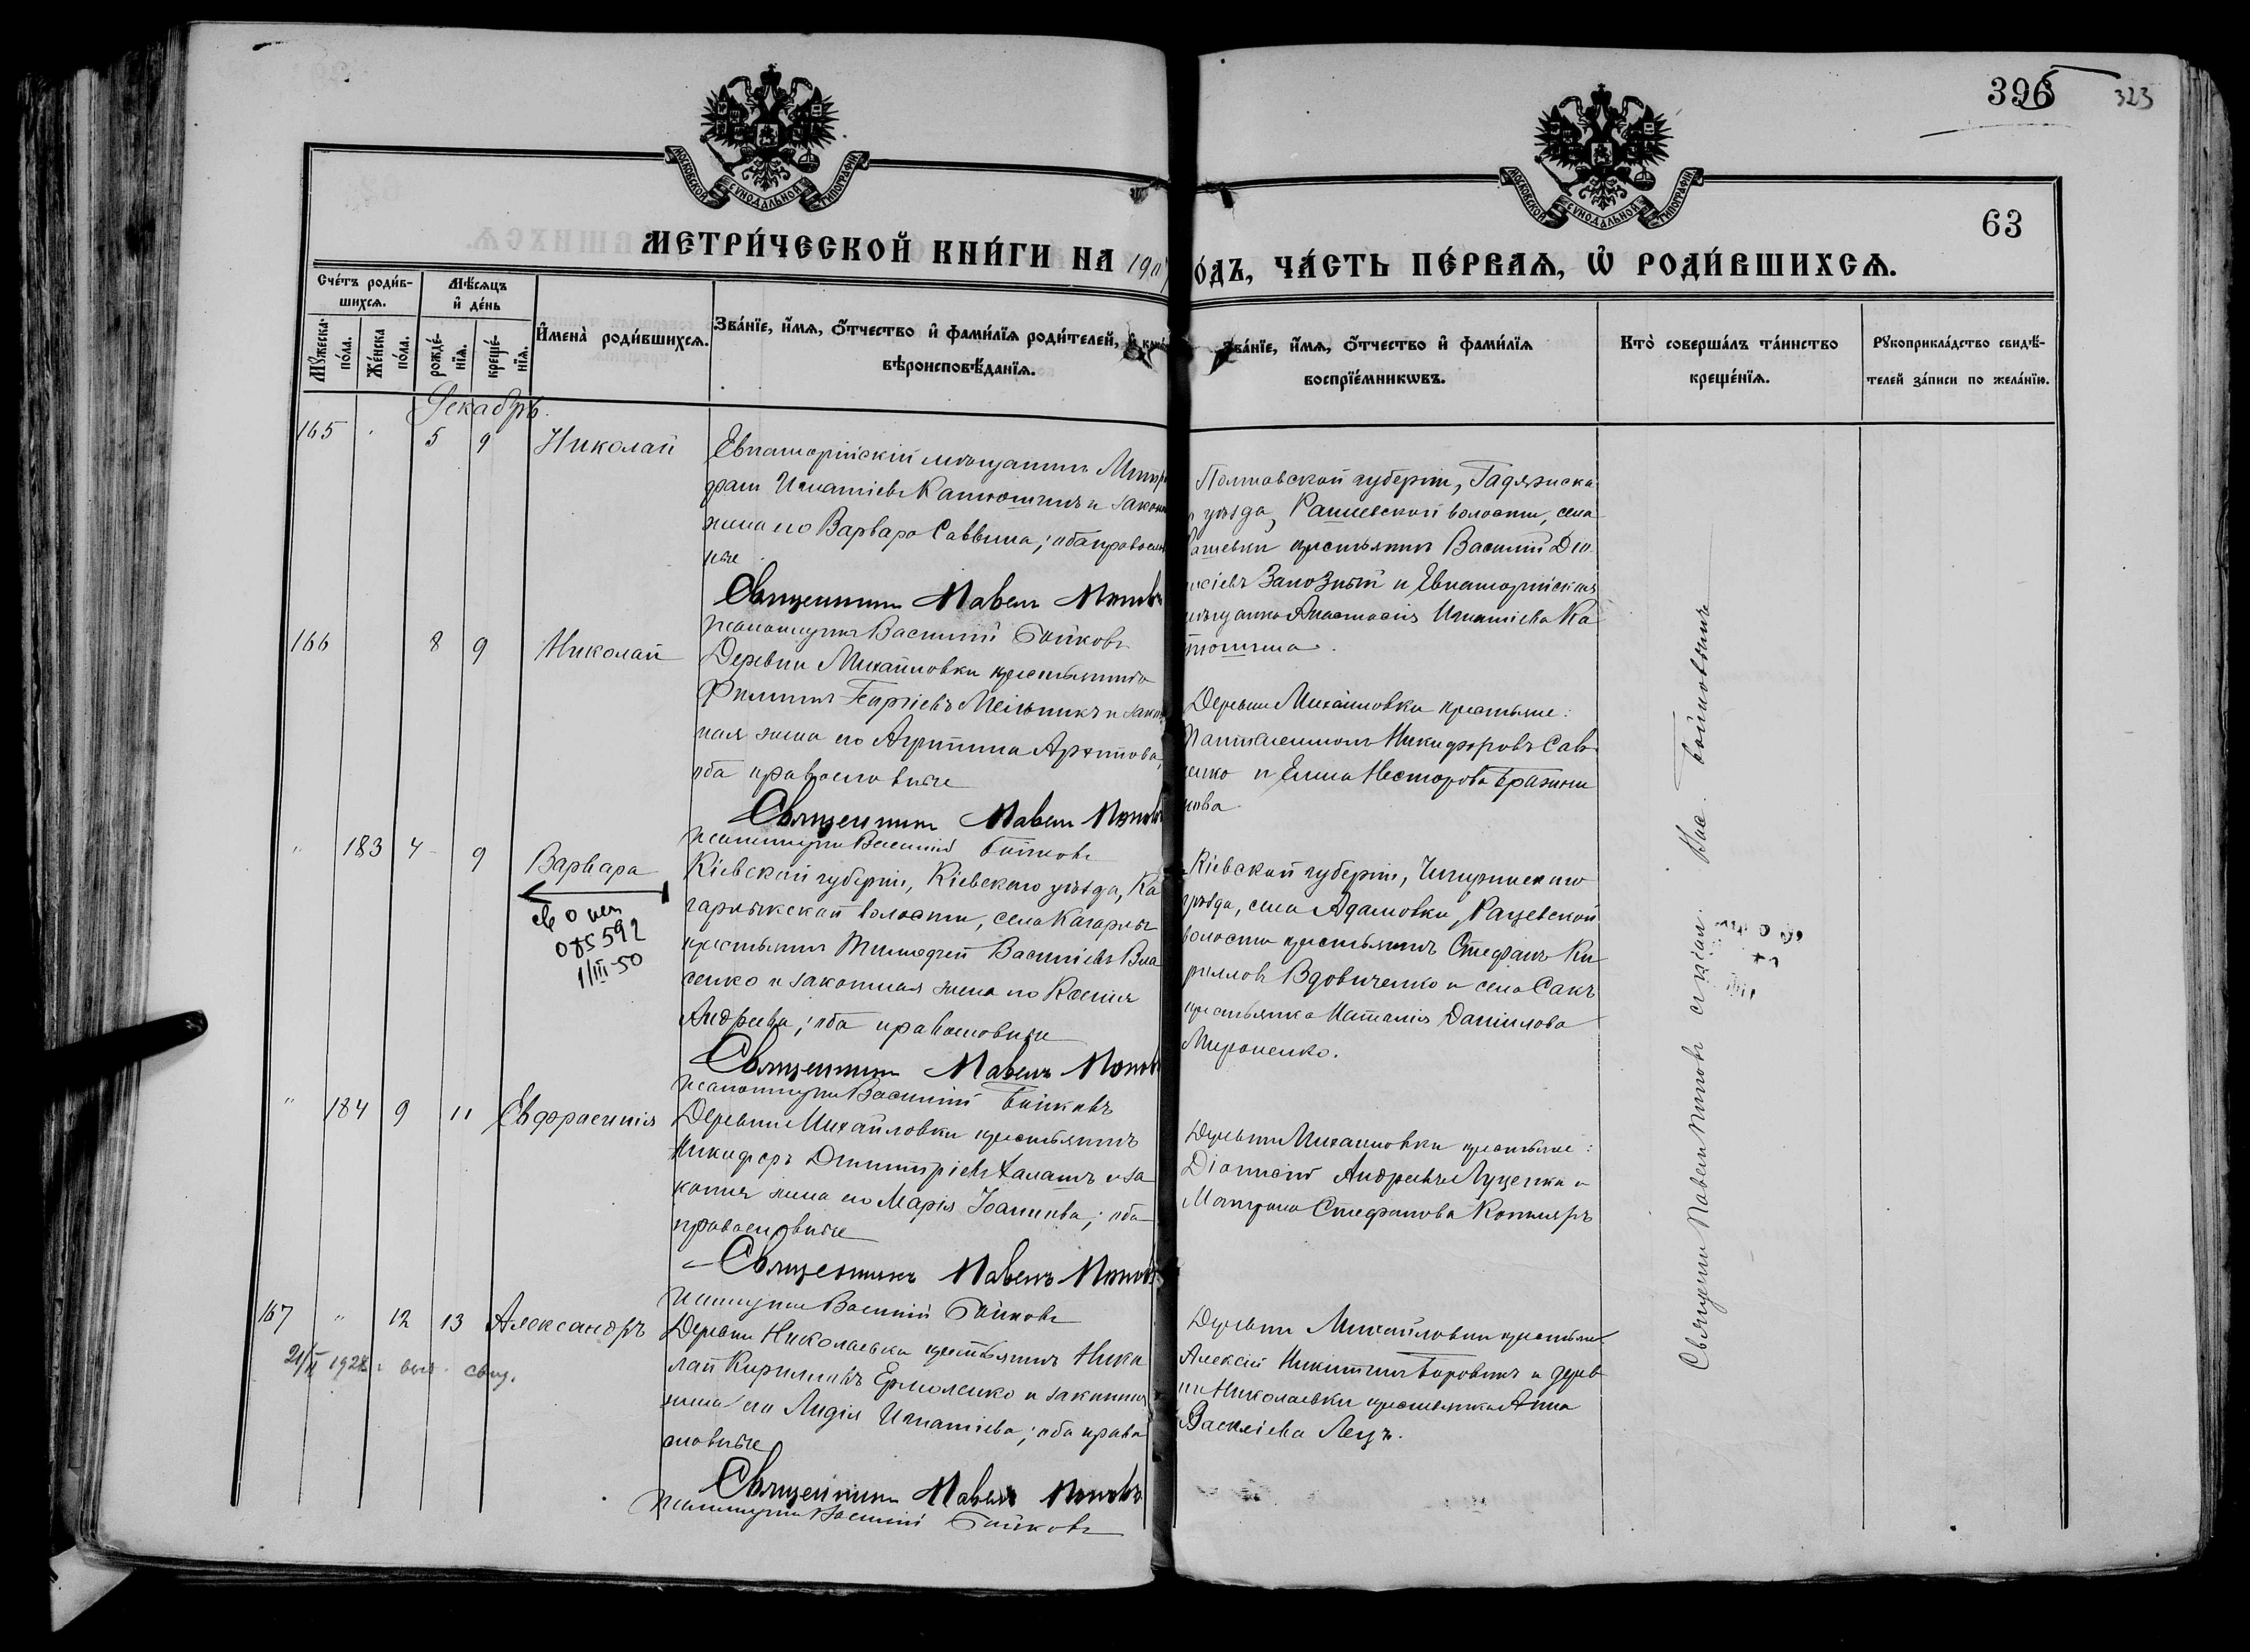 396
323
63
МОСКОВСКОЙ СУНОДАЛЬНОЙ ТИПОГРАФІИ
МОСКОВСКОЙ СУНОДАЛЬНОЙ ТИПОГРАФІИ
МЕТРИ́ЧЕСКОЙ КНИ́ГИ НА 190
ОДЪ, ЧА́СТЬ ПЕ́РВАѦ, Ѡ҆ РОДИ́ВШИХСѦ.
Сче́тъ роди́в-
шихсѧ.
Мѣ́сѧцъ
и҆ де́нь
Мꙋ́жеска по́ла.
Же́нска по́ла.
рожде́-
нїѧ.
креще́-
нїѧ.
И҆мена̀ роди́вшихсѧ.
Зва́нїе, и҆́мѧ, ѻ҆́тчество и҆ фами́лїѧ роди́телей, и҆
вѣроисповѣ́данїѧ.
Зва́нїе, и҆́мѧ, ѻ҆́тчество и҆ фами́лїѧ
воспрїе́мникѡвъ.
Кто̀ соверша́лъ та́инство
креще́нїѧ.
Рꙋкоприкла́дство свидѣ́-
телей за́писи по жела́нїю.
Декабрь.
165
5 9 Николай
Евпаторійскій мѣщанинъ Митро
фан Игнатіевъ Катюшинъ и закон
жена его Варвара Саввина; оба православ
ные
Священникъ Павелъ Поповъ
псаломщикъ Василій Бойковъ
Полтавской губерніи, Гадячска
уѣзда, Рашевской волости, села
Рашевки крестьянинъ Василій Дио
нисіевъ Запозный и Евпаторійская
мѣщанка Анастасія Игнатіева Ка
тюшина.
166
8 9 Николай
Деревни Михайловки крестьянинъ
Филиппъ Георгіевъ Мельникъ и закон
ная жена его Агриппина Архипова,
оба православные
Священникъ Павелъ Поповъ
псаломщикъ Василій Бойковъ
Деревни Михайловки крестьяне:
Пантелеимонъ Никифоровъ Сав
ченко и Елена Несторова Бражни
кова
" 183 4 9 Варвара
св о
085592
1/III-50
Кіевской губерніи, Кіевскаго уѣзда, Ка
гарлыкской волости, села Кагарлык
крестьянинъ Тимофей Васильевъ Вла
сенко и законная жена его Ксенія
Андреева; оба православные
Священникъ Павелъ Поповъ
псаломщикъ Василій Бойковъ
Кіевской губерніи, Чигиринскаго
уѣзда, села Адамовки, Рацевской
волости крестьянинъ Стефанъ Ки
рилловъ Вдовиченко и села Сакъ
крестьянка Наталія Даніилова
Мироненко.
" 184 9 11 Евфросинія
Деревни Михайловки крестьянинъ
Никифоръ Димитріевъ Халапъ и за
конная жена его Марія Іоаннова; оба
православные
Священникъ Павелъ Поповъ
псаломщикъ Василій Бойковъ
Деревни Михайловки крестьяне:
Діонисій Андреевъ Луценко и
Матрона Стефанова Котляръ
167 " 12 13 Александръ
21/II 1928 г. выд. свид.
Деревни Николаевки крестьянинъ Нико
лай Кирилловъ Ермоленко и законная
жена его Лидія Игнатіева; оба право
славные
Священникъ Павелъ Поповъ
псаломщикъ Василій Бойковъ
Деревни Михайловки крестьянинъ
Алексій Никитинъ Боровикъ и дерев
ни Николаевки крестьянка Анна
Василіева Лецъ.
Священникъ Павелъ Поповъ съ псал. Вас. Бойковымъ